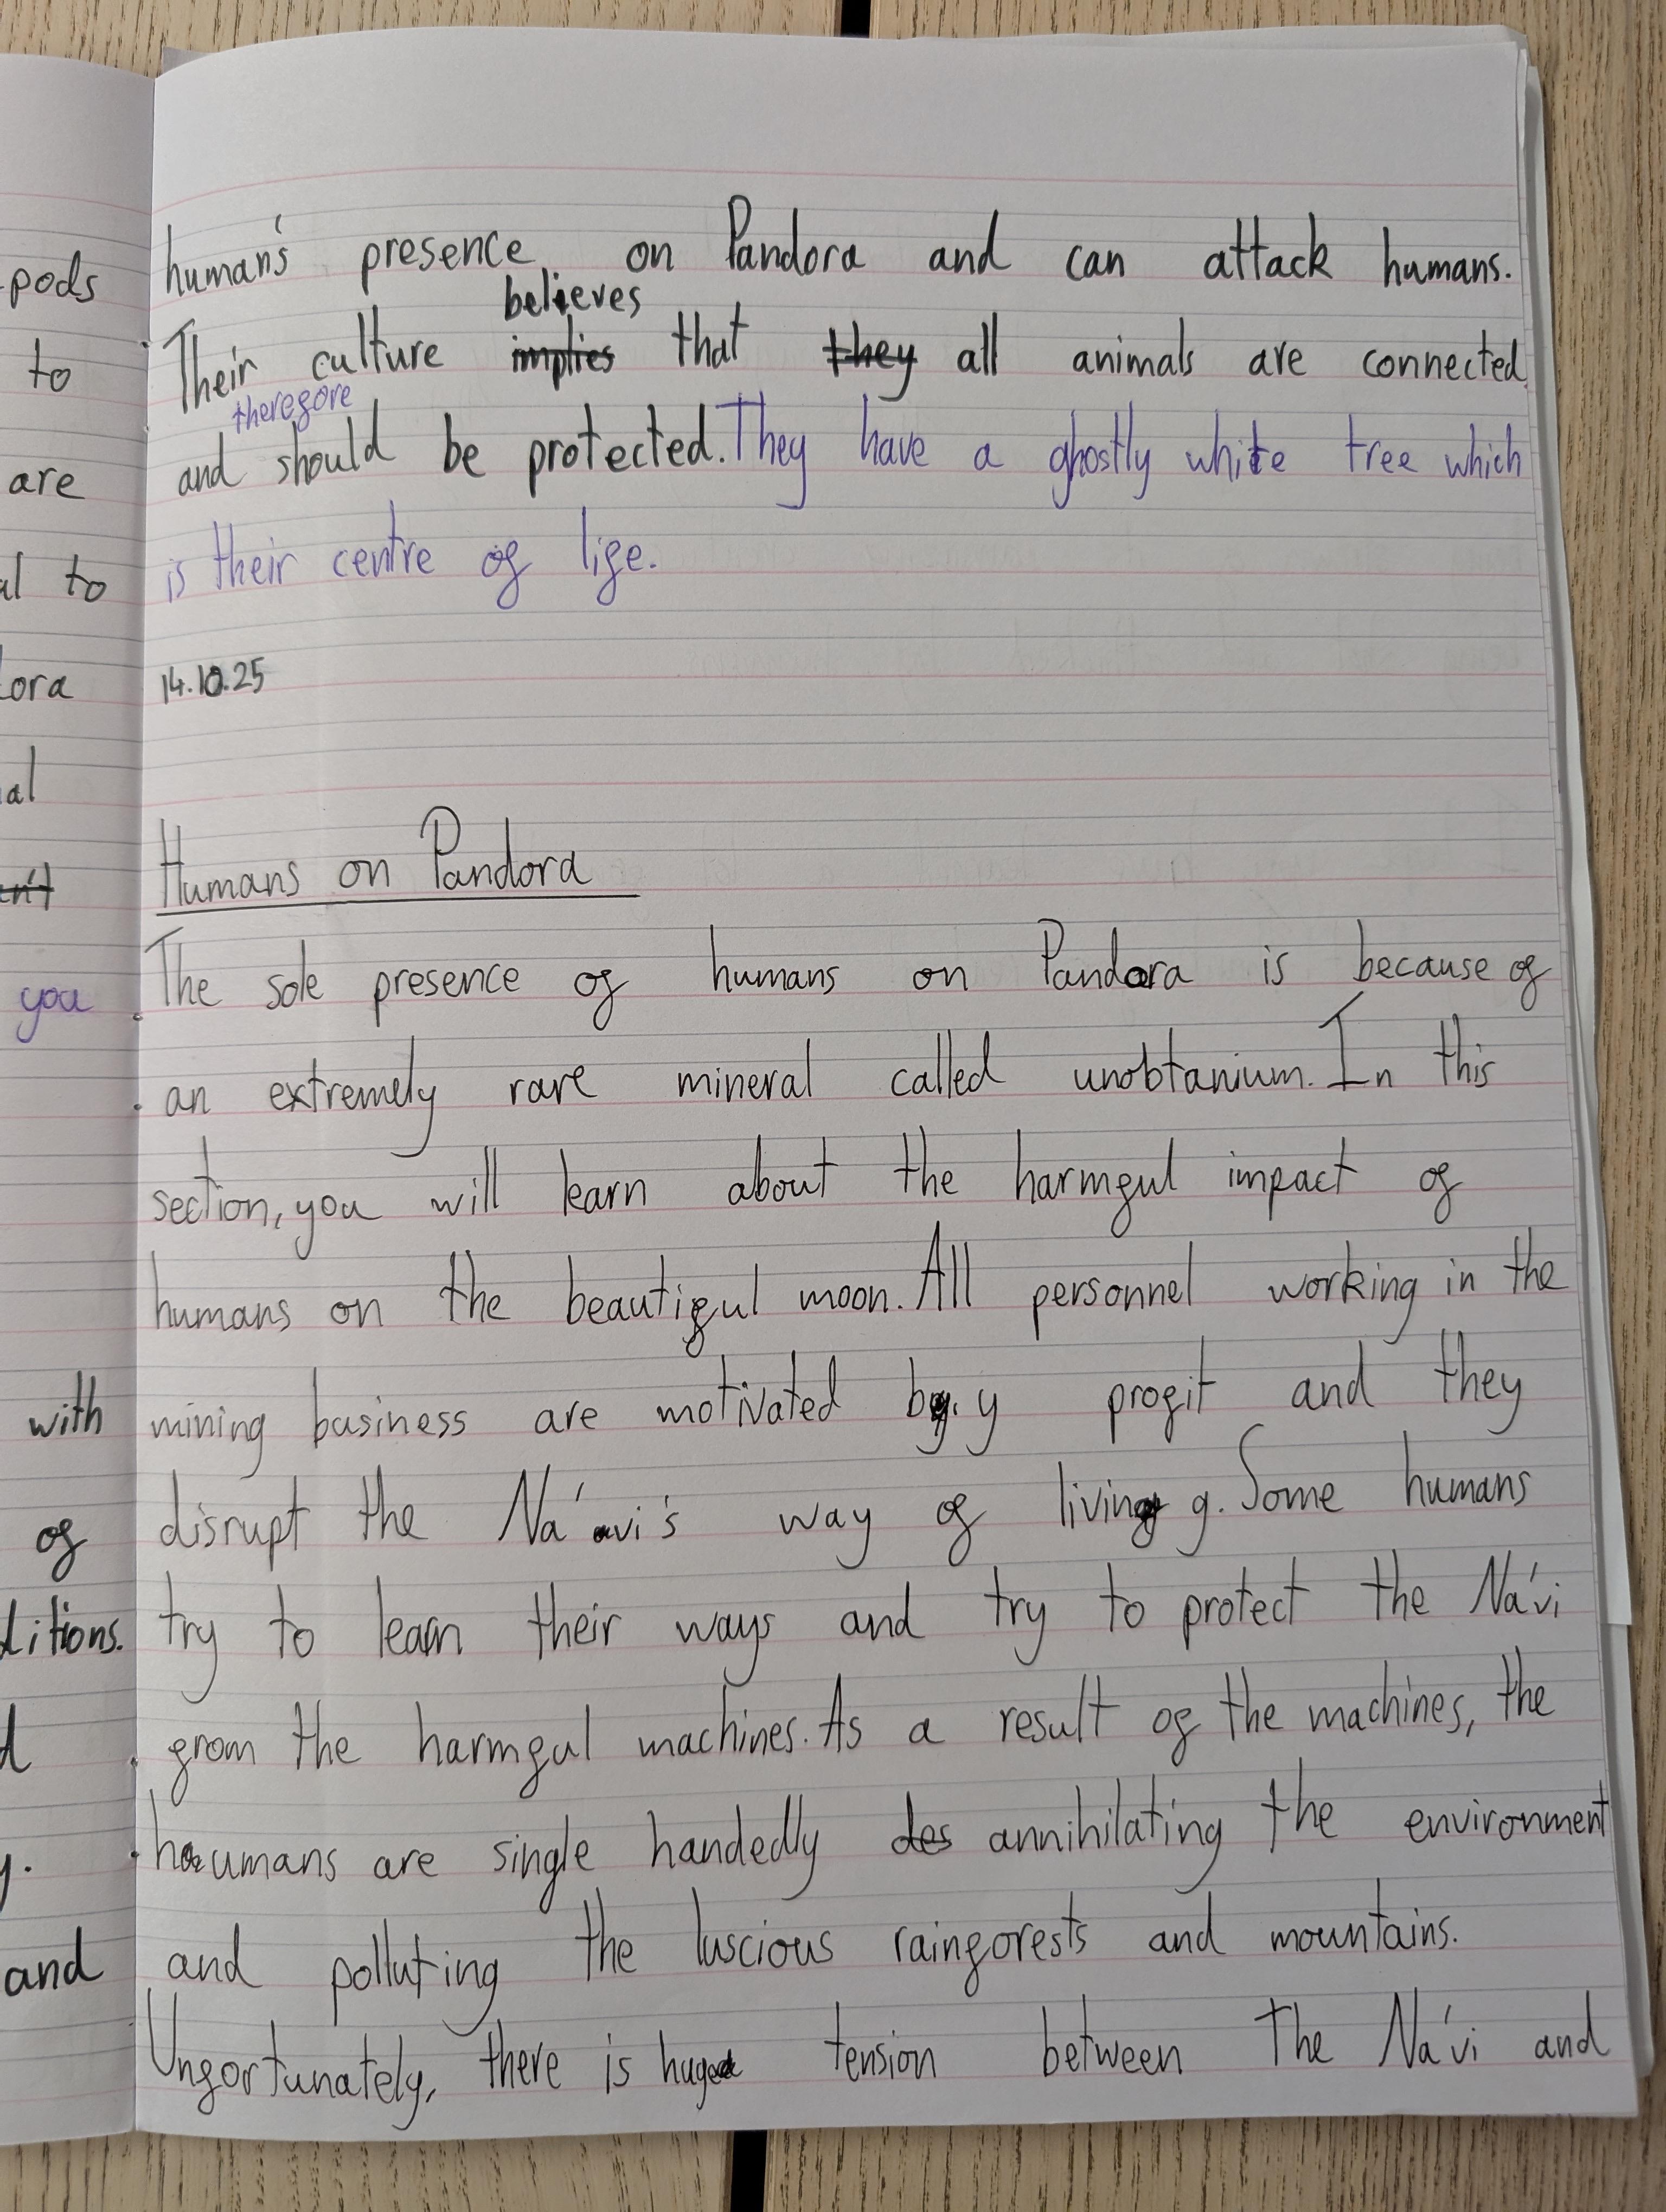 pods
to
are
al to
ora
al
you
with
of
ditions.
d
y.
and
human's presence on Pandora and can attack humans.
believes
Their culture implies that they all animals are connected
therefore
and should be protected. They have a ghostly white tree which
is their centre of life.
14.10.25
Humans on Pandora
The sole presence of humans on Pandora is because of
an extremely rare mineral called unobtanium. In this
section, you will learn about the harmful impact of
humans on the beautiful moon. All personnel working in the
mining business are motivated by profit and they
disrupt the Na'avi's way of living. Some humans
try to learn their ways and try to protect the Na'vi
from the harmful machines. As a result of the machines, the
humans are single handedly des annihilating the environment
and polluting the luscious rainforests and mountains.
Unfortunately, there is huge tension between The Na'vi and